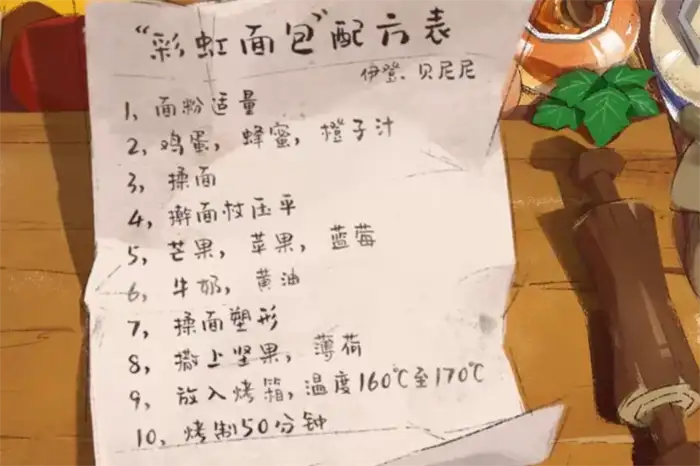 “彩虹面包”配方表
伊登、贝尼尼
1、面粉适量
2、鸡蛋，蜂蜜，橙子汁
3、揉面
4、擀面杖压平
5、芒果，苹果，蓝莓
6、牛奶，黄油
7、揉面塑形
8、撒上坚果，薄荷
9、放入烤箱，温度160℃至170℃
10、烤制50分钟